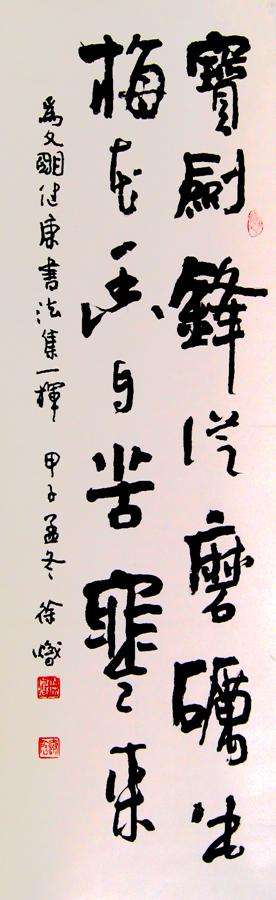 寶劍鋒從磨礪出
梅花香自苦寒來
為文健康書法集一揮 甲子孟冬 徐熾